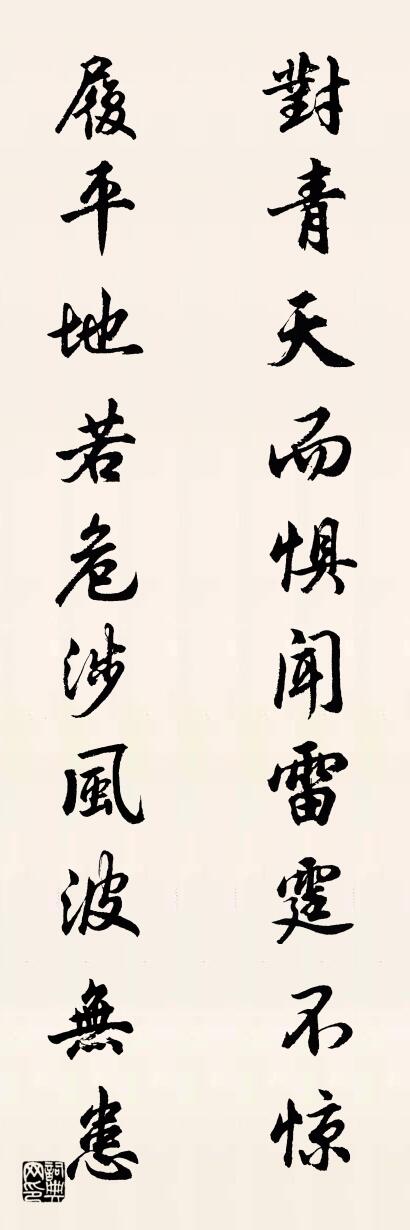 對青天而惧聞雷霆不惊
履平地若危涉風波無患
詞典网印